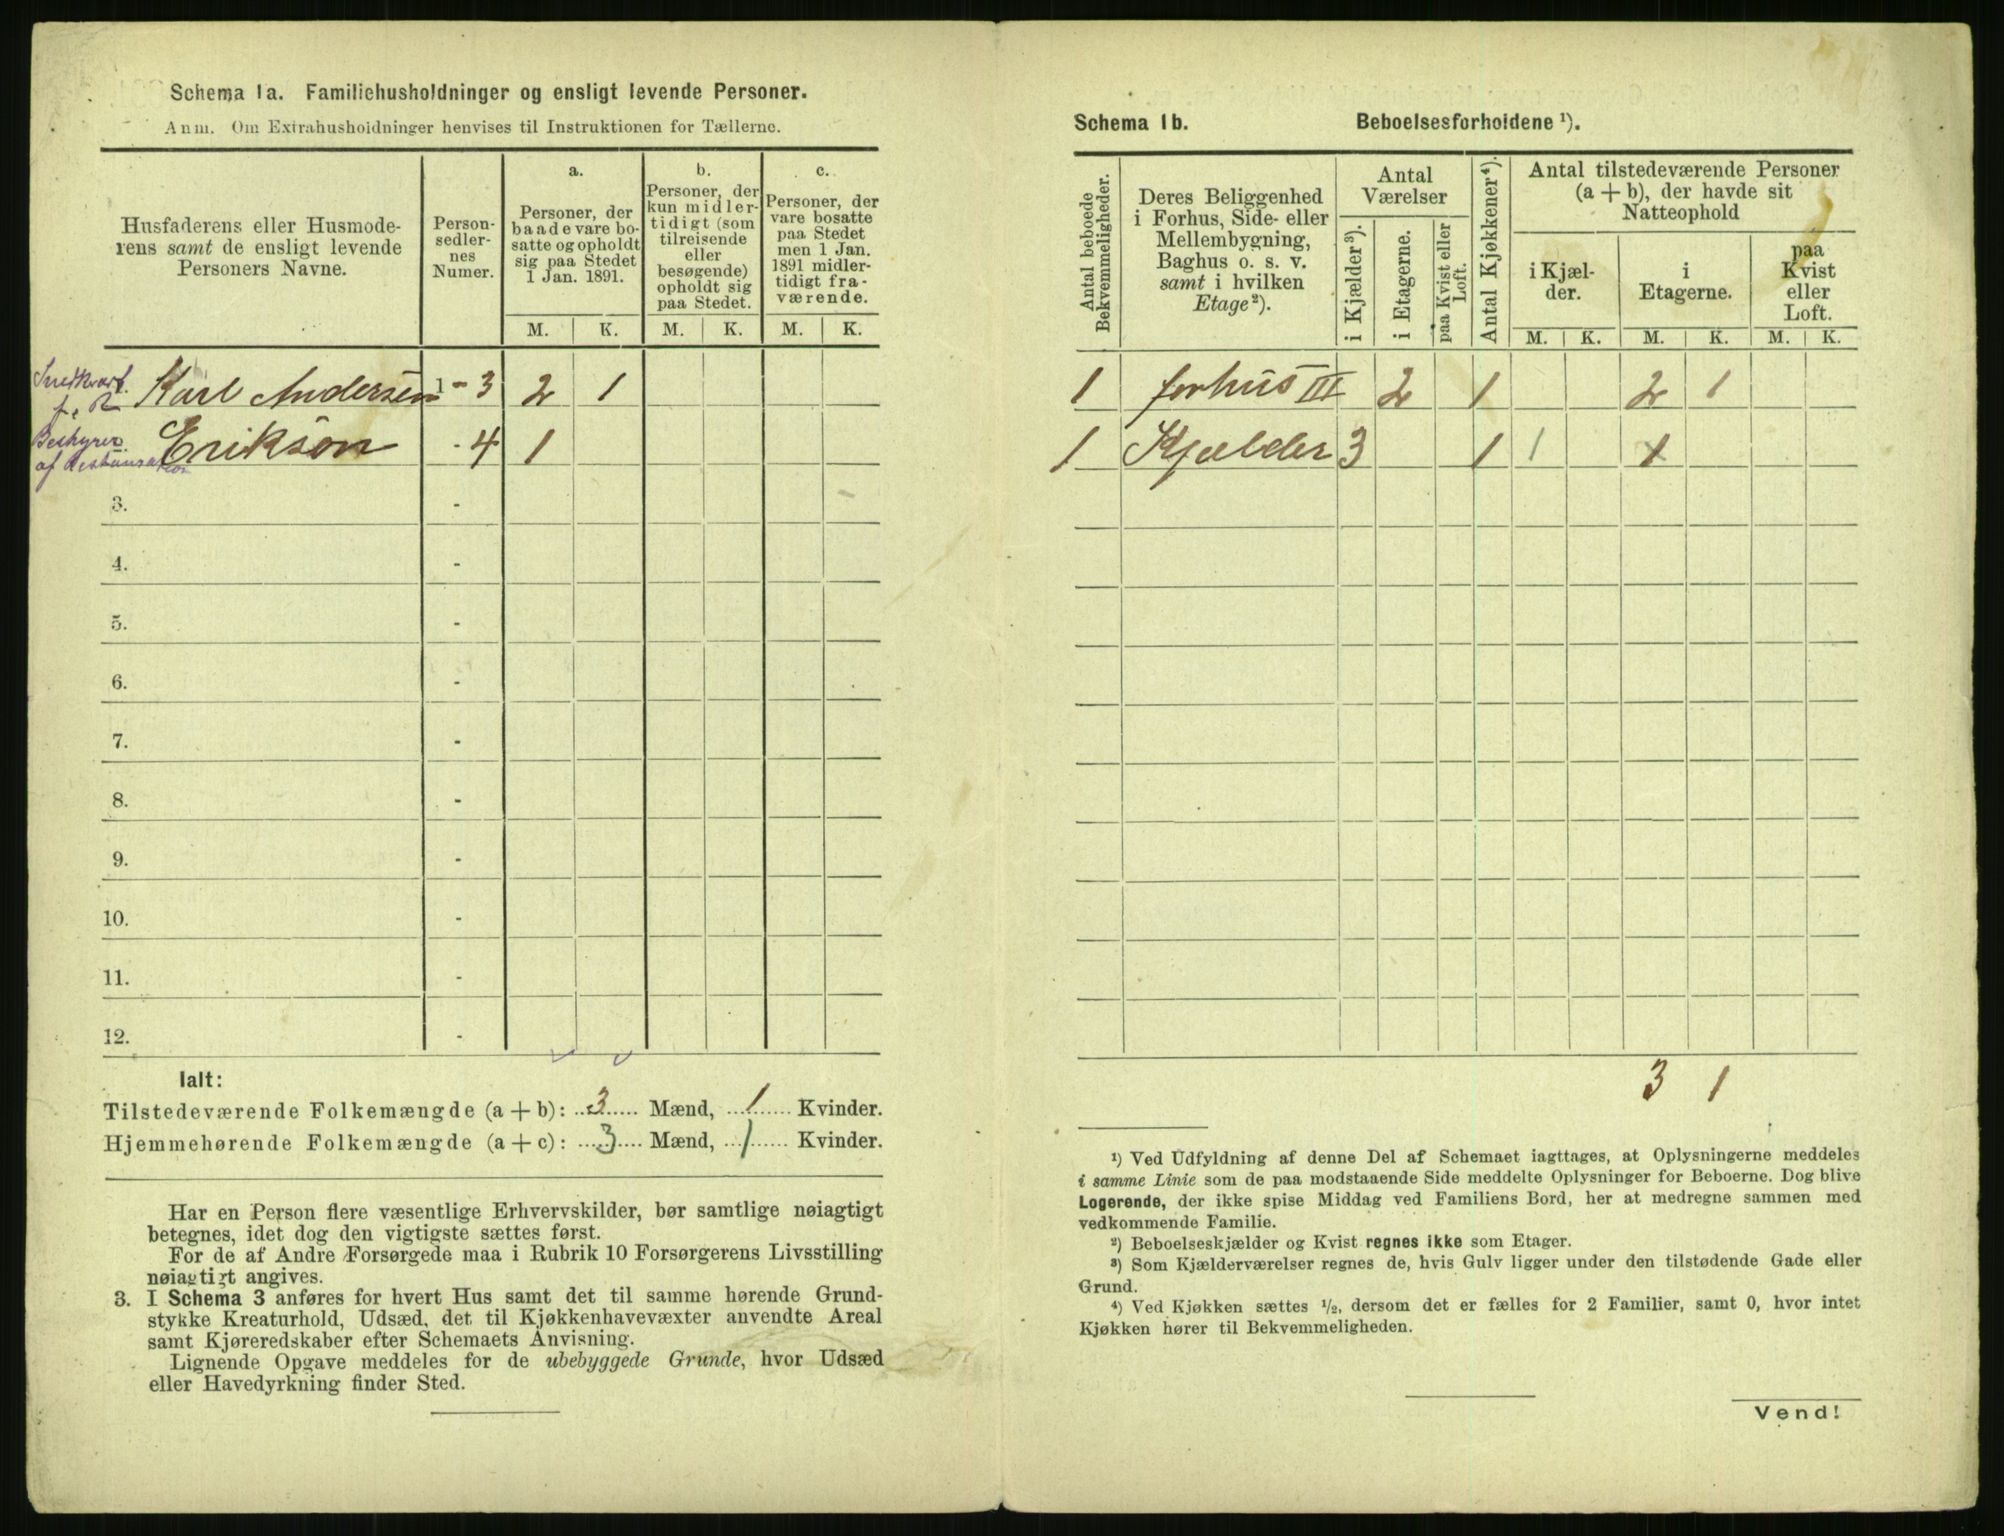 Schema 1a. Familiehusholdninger og ensligt levende Personer.
Anm. Om Extrahusholdninger henvises til Instruktionen for Tællerne.
Husfaderens eller Husmode-
rens samt de ensligt levende
Personers Navne.
Person-
sedler-
nes
Numer.
a.
Personer, der
baade vare bo-
satte og opholdt
sig paa Stedet
1 Jan. 1891.
b.
Personer, der
kun midler-
tidigt (som
tilreisende
eller
besøgende)
opholdt sig
paa Stedet.
c.
Personer, der
vare bosatte
paa Stedet
men 1 Jan.
1891 midler-
tidigt fra-
værende.
M. K. M. K. M. K.
Karl Andersen 1 - 3 2 1
Bestyrer
af Restauration
Erikson - 4 1
3. -
4. -
5. -
6. -
7. -
8. -
9. -
10. -
11. -
12. -
Ialt:
Tilstedeværende Folkemængde (a + b): 3 Mænd, 1 Kvinder.
Hjemmehørende Folkemængde (a + c): 3 Mænd, 1 Kvinder.
Har en Person flere væsentlige Erhvervskilder, bør samtlige nøiagtigt
betegnes, idet dog den vigtigste sættes først.
For de af Andre Forsørgede maa i Rubrik 10 Forsørgerens Livsstilling
nøiagtigt angives.
3. I Schema 3 anføres for hvert Hus samt det til samme hørende Grund-
stykke Kreaturhold, Udsæd, det til Kjøkkenhavevæxter anvendte Areal
samt Kjøreredskaber efter Schemaets Anvisning.
Lignende Opgave meddeles for de ubebyggede Grunde, hvor Udsæd
eller Havedyrkning finder Sted.
Schema 1b. Beboelsesforholdene ¹).
Antal beboede
Bekvemmeligheder.
Deres Beliggenhed
i Forhus, Side- eller
Mellembygning,
Baghus o. s. v.
samt i hvilken
Etage²).
Antal
Værelser
i Kjælder³).
i Etagerne.
paa Kvist eller
Loft.
Antal Kjøkkener⁴).
Antal tilstedeværende Personer
(a + b), der havde sit
Natteophold
i Kjæl-
der.
i
Etagerne.
paa
Kvist
eller
Loft.
M. K. M. K. M. K.
1 forhus III 2 1 2 1
1 Kjælder 3 1 1 1
3 1
¹) Ved Udfyldning af denne Del af Schemaet iagttages, at Oplysningerne meddeles
i samme Linie som de paa modstaaende Side meddelte Oplysninger for Beboerne. Dog blive
Logerende, der ikke spise Middag ved Familiens Bord, her at medregne sammen med
vedkommende Familie.
²) Beboelseskjælder og Kvist regnes ikke som Etager.
³) Som Kjælderværelser regnes de, hvis Gulv ligger under den tilstødende Gade eller
Grund.
⁴) Ved Kjøkken sættes ½, dersom det er fælles for 2 Familier, samt 0, hvor intet
Kjøkken hører til Bekvemmeligheden.
Vend!